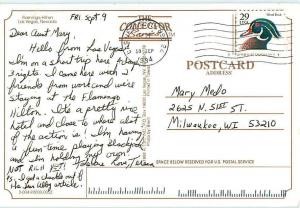 Flamingo Hilton
Las Vegas, Nevada
FRI. Sept 9
Dear Aunt Mary,
Hello from Las Vegas!
I'm on a short trip here for
3 nights. I came here with
friends from work and we're
staying at the Flamingo
Hilton. It's a pretty nice
hotel and close to where alot
of the action is! I'm having
a fun time playing blackjack
and I'm holding my own.
NOT RICH YET!
Love, Teresa
P.S. I got a chuckle out of
the San article.
THE
COLLECTOR
SEP
1994
29
USA
Wood Duck
POSTCARD
ADDRESS
Mary Medo
2625 N. 51st ST.
Milwaukee, WI 53210
SPACE BELOW RESERVED FOR U.S. POSTAL SERVICE